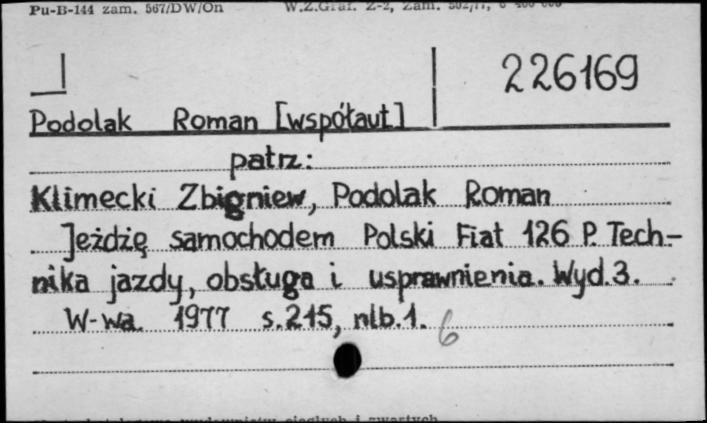 Pu-B-144 zam. 567/DW/On W.Z.Graf. Z-2, zam.
226169
Podolak Roman [współaut]
patrz:
Klimecki Zbigniew, Podolak Roman
Jeżdżę samochodem Polski Fiat 126 P. Tech-
nika jazdy, obsługa i usprawnienia. Wyd.3.
W-wa 1977 s.215, nlb.1.
6